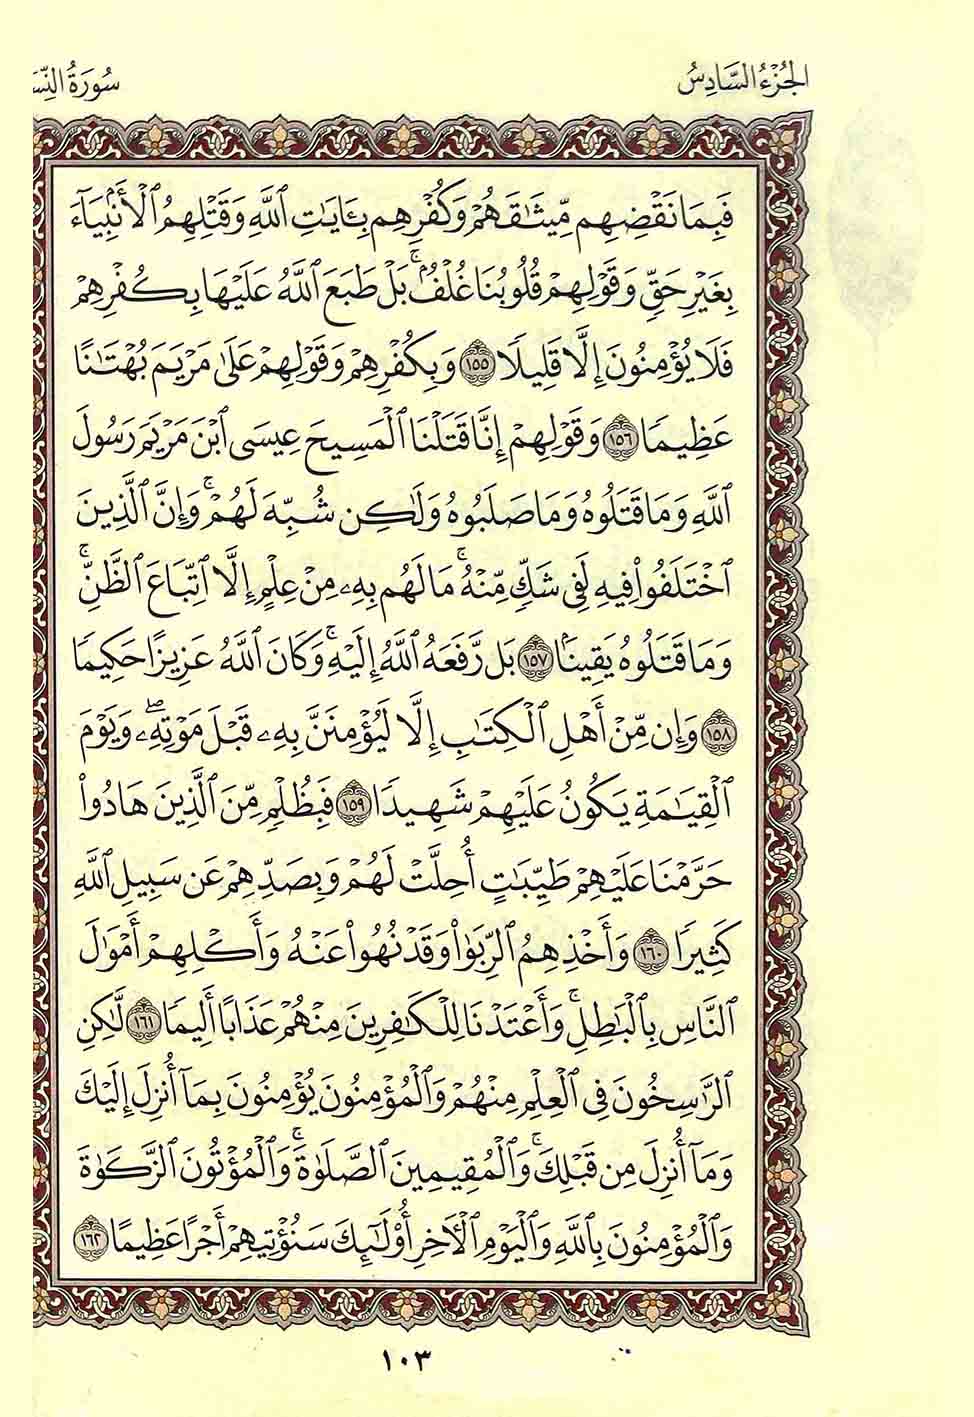 الجُزْءُ السَّادِسُ
سُورَةُ النِّسَ
فَبِمَا نَقْضِهِم مِّيثَٰقَهُمْ وَكُفْرِهِم بِـَٔايَٰتِ ٱللَّهِ وَقَتْلِهِمُ ٱلْأَنۢبِيَآءَ
بِغَيْرِ حَقٍّ وَقَوْلِهِمْ قُلُوبُنَا غُلْفٌۢ ۚ بَلْ طَبَعَ ٱللَّهُ عَلَيْهَا بِكُفْرِهِمْ
فَلَا يُؤْمِنُونَ إِلَّا قَلِيلًا ١٥٥ وَبِكُفْرِهِمْ وَقَوْلِهِمْ عَلَىٰ مَرْيَمَ بُهْتَٰنًا
عَظِيمًا ١٥٦ وَقَوْلِهِمْ إِنَّا قَتَلْنَا ٱلْمَسِيحَ عِيسَى ٱبْنَ مَرْيَمَ رَسُولَ
ٱللَّهِ وَمَا قَتَلُوهُ وَمَا صَلَبُوهُ وَلَٰكِن شُبِّهَ لَهُمْ ۚ وَإِنَّ ٱلَّذِينَ
ٱخْتَلَفُوا۟ فِيهِ لَفِى شَكٍّ مِّنْهُ ۚ مَا لَهُم بِهِۦ مِنْ عِلْمٍ إِلَّا ٱتِّبَاعَ ٱلظَّنِّ ۚ
وَمَا قَتَلُوهُ يَقِينًۢا ١٥٧ بَل رَّفَعَهُ ٱللَّهُ إِلَيْهِ ۚ وَكَانَ ٱللَّهُ عَزِيزًا حَكِيمًا
١٥٨ وَإِن مِّنْ أَهْلِ ٱلْكِتَٰبِ إِلَّا لَيُؤْمِنَنَّ بِهِۦ قَبْلَ مَوْتِهِۦ ۖ وَيَوْمَ
ٱلْقِيَٰمَةِ يَكُونُ عَلَيْهِمْ شَهِيدًا ١٥٩ فَبِظُلْمٍ مِّنَ ٱلَّذِينَ هَادُوا۟
حَرَّمْنَا عَلَيْهِمْ طَيِّبَٰتٍ أُحِلَّتْ لَهُمْ وَبِصَدِّهِمْ عَن سَبِيلِ ٱللَّهِ
كَثِيرًا ١٦٠ وَأَخْذِهِمُ ٱلرِّبَوٰا۟ وَقَدْ نُهُوا۟ عَنْهُ وَأَكْلِهِمْ أَمْوَٰلَ
ٱلنَّاسِ بِٱلْبَٰطِلِ ۚ وَأَعْتَدْنَا لِلْكَٰفِرِينَ مِنْهُمْ عَذَابًا أَلِيمًا ١٦١ لَّٰكِنِ
ٱلرَّٰسِخُونَ فِى ٱلْعِلْمِ مِنْهُمْ وَٱلْمُؤْمِنُونَ يُؤْمِنُونَ بِمَآ أُنزِلَ إِلَيْكَ
وَمَآ أُنزِلَ مِن قَبْلِكَ ۚ وَٱلْمُقِيمِينَ ٱلصَّلَوٰةَ ۚ وَٱلْمُؤْتُونَ ٱلزَّكَوٰةَ
وَٱلْمُؤْمِنُونَ بِٱللَّهِ وَٱلْيَوْمِ ٱلْـَٔاخِرِ أُو۟لَٰٓئِكَ سَنُؤْتِيهِمْ أَجْرًا عَظِيمًا ١٦٢
١٠٣